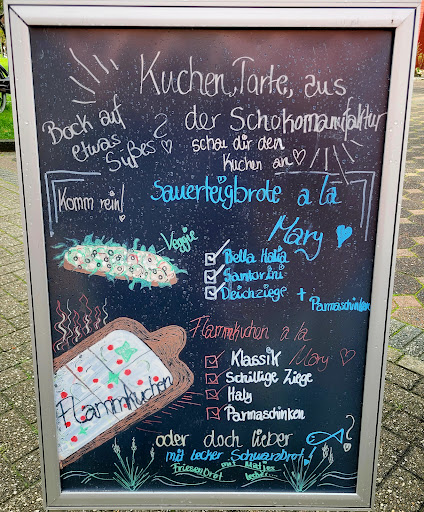 Kuchen, Tarte, aus
der Schokomanufaktur
Bock auf
etwas
Süßes?
schau dir den
Kuchen an
Komm rein!
Sauerteigbrote a la
Mary
Veggie
Bella Italia
Santorini
Deichziege + Parmaschinken
Flammkuchen a la
Mary
Klassik
Schüttige Ziege
Italy
Parmaschinken
Flammkuchen
oder doch lieber ?
mit lecker SchwarzBrot!
FriesenBrot mit Matjes
lecker...